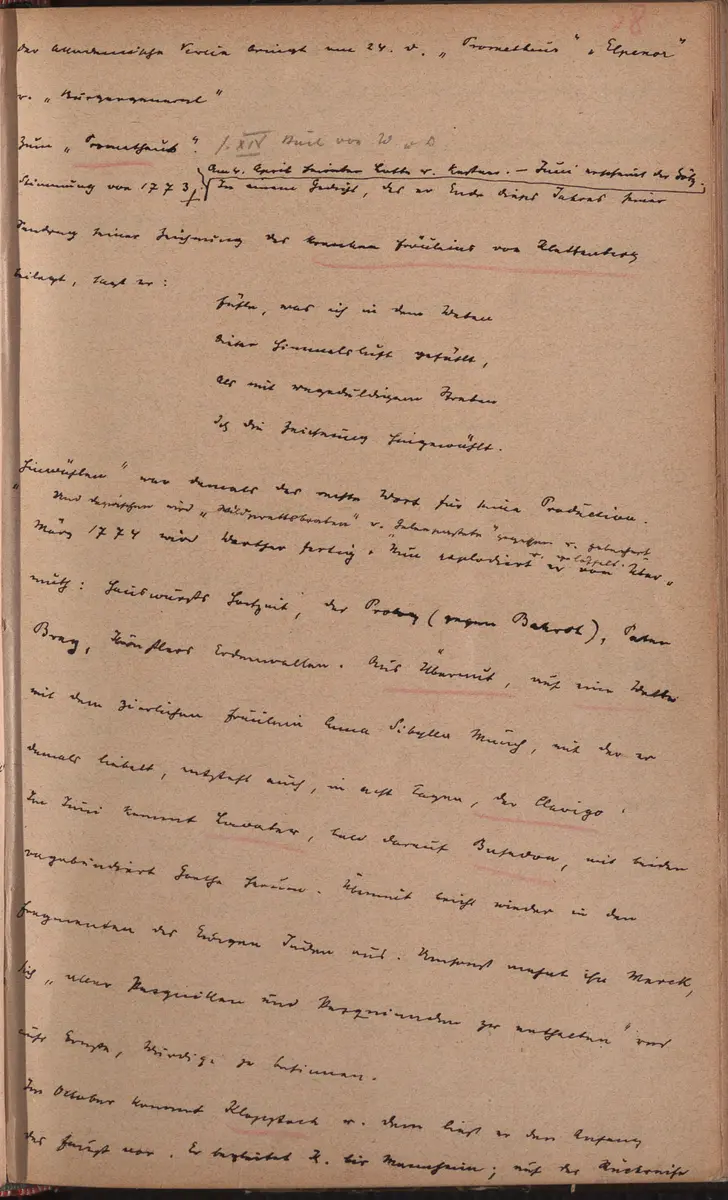 28
Der Akademische Verein bringt am 24. d. „Prometheus“ „Elpenor“
u. „Bürgergeneral“
Zum „Prometheus“: s. XIV Buch von W u D
Am 4. April heiratet Lotte u. Kestner. – Juni erscheint der Götz.
Stimmung von 1773, In einem Gedicht, das er Ende dieses Jahres seiner
Sendung seiner Zeichnung des kranken Fräuleins von Klettenberg
beilegt, sagt er:
Fühle, was ich in dem Weben
dieser Himmelsluft gefühlt,
Als mit ungeduldigem Streben
Ich die Zeichnung hingewühlt.
„Hinwühlen“ war damals das rechte Wort für seine Production.
Und dazwischen wird „Wildprettsbraten“ u. gegessen u. gebechert
März 1774 wird Werther fertig. Nun explodiert er vom Über-
muth: Hanswursts Hochzeit, der Prolog (gegen Bahrdt), Pater
Brey, Künstlers Erdenwallen. Aus Übermut, auf eine Wette
mit dem zierlichen Fräulein Anna Sibylla Münch, mit der er
damals liebelt, entsteht auch, in acht Tagen, der Clavigo.
Im Juni kommt Lavater, bald darauf Basedow, mit beiden
vagabundiert Goethe herum. Übermut bricht wieder in den
Fragmenten des Ewigen Juden aus. Umsonst mahnt ihn Merck,
sich „aller Pasquillen und Pasquinaden zu enthalten“ und
aufs Ernste, Würdige zu besinnen.
Im October kommt Klopstock u. dem liest er den Anfang
des Faust vor. Er begleitet K. bis Mannheim; auf der Rückreise